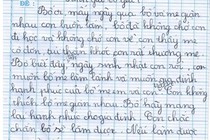 Bố ơi, mấy ngày qua bố và mẹ giận
nhau con buồn lắm. Bố đã không chở con
đi học và không chở con về con thấy mình
cô đơn, tủi thân khóc con rất thương mẹ
Bố biết đây ngày sinh nhật con, con
muốn bố mẹ làm lành và muốn gia đình
hạnh phúc của bố mẹ em và con. Con không
thích bố mẹ giận nhau. Bố hãy mang
lại hạnh phúc cho gia đình. Con chắc
chắn bố sẽ làm được. Nếu làm được